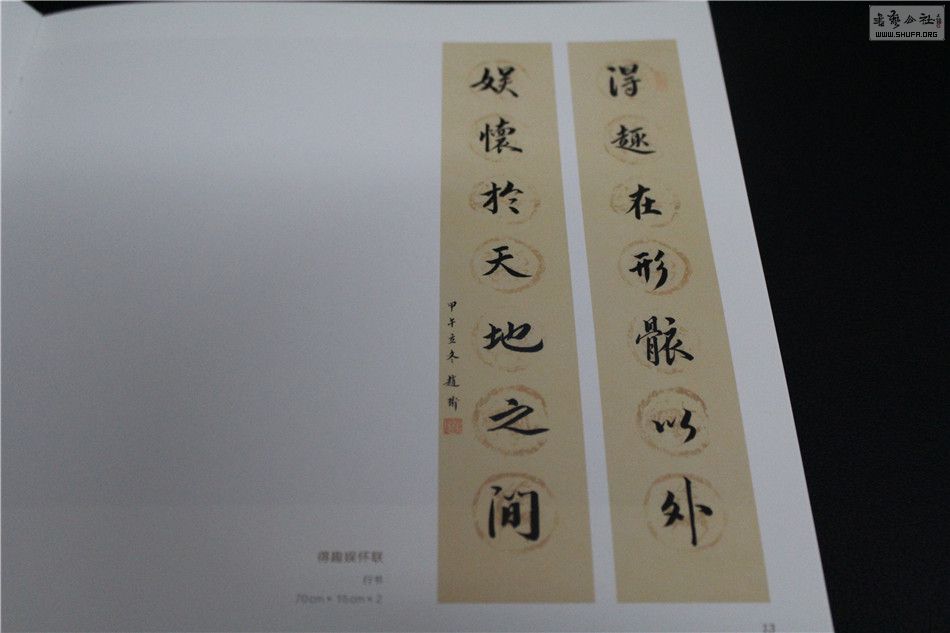 得趣在形骸以外
娱懷於天地之間
甲午立冬 趙
得趣娱怀联
行书
70cm×16cm×2
13
书艺公社
WWW.SHUFA.ORG